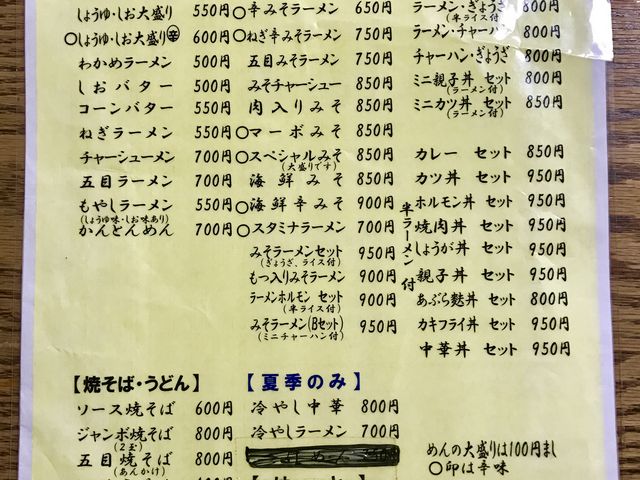 しょうゆ・しお大盛り 550円
○しょうゆ・しお大盛り㊛ 600円
わかめラーメン 500円
しおバター 500円
コーンバター 550円
ねぎラーメン 550円
チャーシューメン 700円
五目ラーメン 700円
もやしラーメン 550円
(しょうゆ味・しお味あり)
かんとんめん 700円
○辛みそラーメン 650円
○ねぎ辛みそラーメン 750円
五目みそラーメン 750円
みそチャーシュー 850円
肉入りみそ 850円
○マーボみそ 850円
○スペシャルみそ 850円
(大盛りです)
海鮮みそ 850円
○海鮮辛みそ 900円
○スタミナラーメン 700円
みそラーメンセット 950円
(ぎょうざ、ライス付)
もつ入りみそラーメン 900円
ラーメンホルモン セット 900円
(半ライス付)
みそラーメン(Bセット) 950円
(ミニチャーハン付)
ラーメン・ぎょうざ 800円
(半ライス付)
ラーメン・チャーハン 800円
チャーハン・ぎょうざ 800円
ミニ親子丼 セット 800円
(ラーメン付)
ミニカツ丼 セット 850円
(ラーメン付)
半ラーメン付
カレー セット 850円
カツ丼 セット 950円
ホルモン丼 セット 950円
焼肉丼 セット 950円
しょうが丼 セット 950円
親子丼 セット 950円
あぶら麩丼 セット 800円
カキフライ丼 セット 950円
中華丼 セット 950円
【焼そば・うどん】
ソース焼そば 600円
ジャンボ焼そば 800円
(2玉)
五目焼そば 800円
(あんかけ)
【夏季のみ】
冷やし中華 800円
冷やしラーメン 700円
めんの大盛りは100円まし
○印は辛味